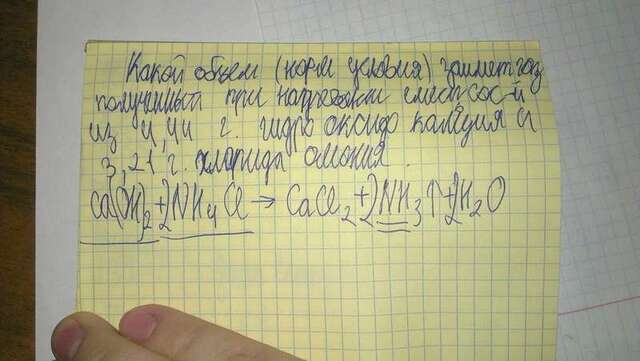 Какой объем (норм условия) займет газ
полученный при нагревании смеси сос-й
из 4,44 г. гидро оксида кальция и
3,21 г. хлорида амония.
Ca(OH)₂+2NH₄Cl → CaCl₂+2NH₃↑+2H₂O